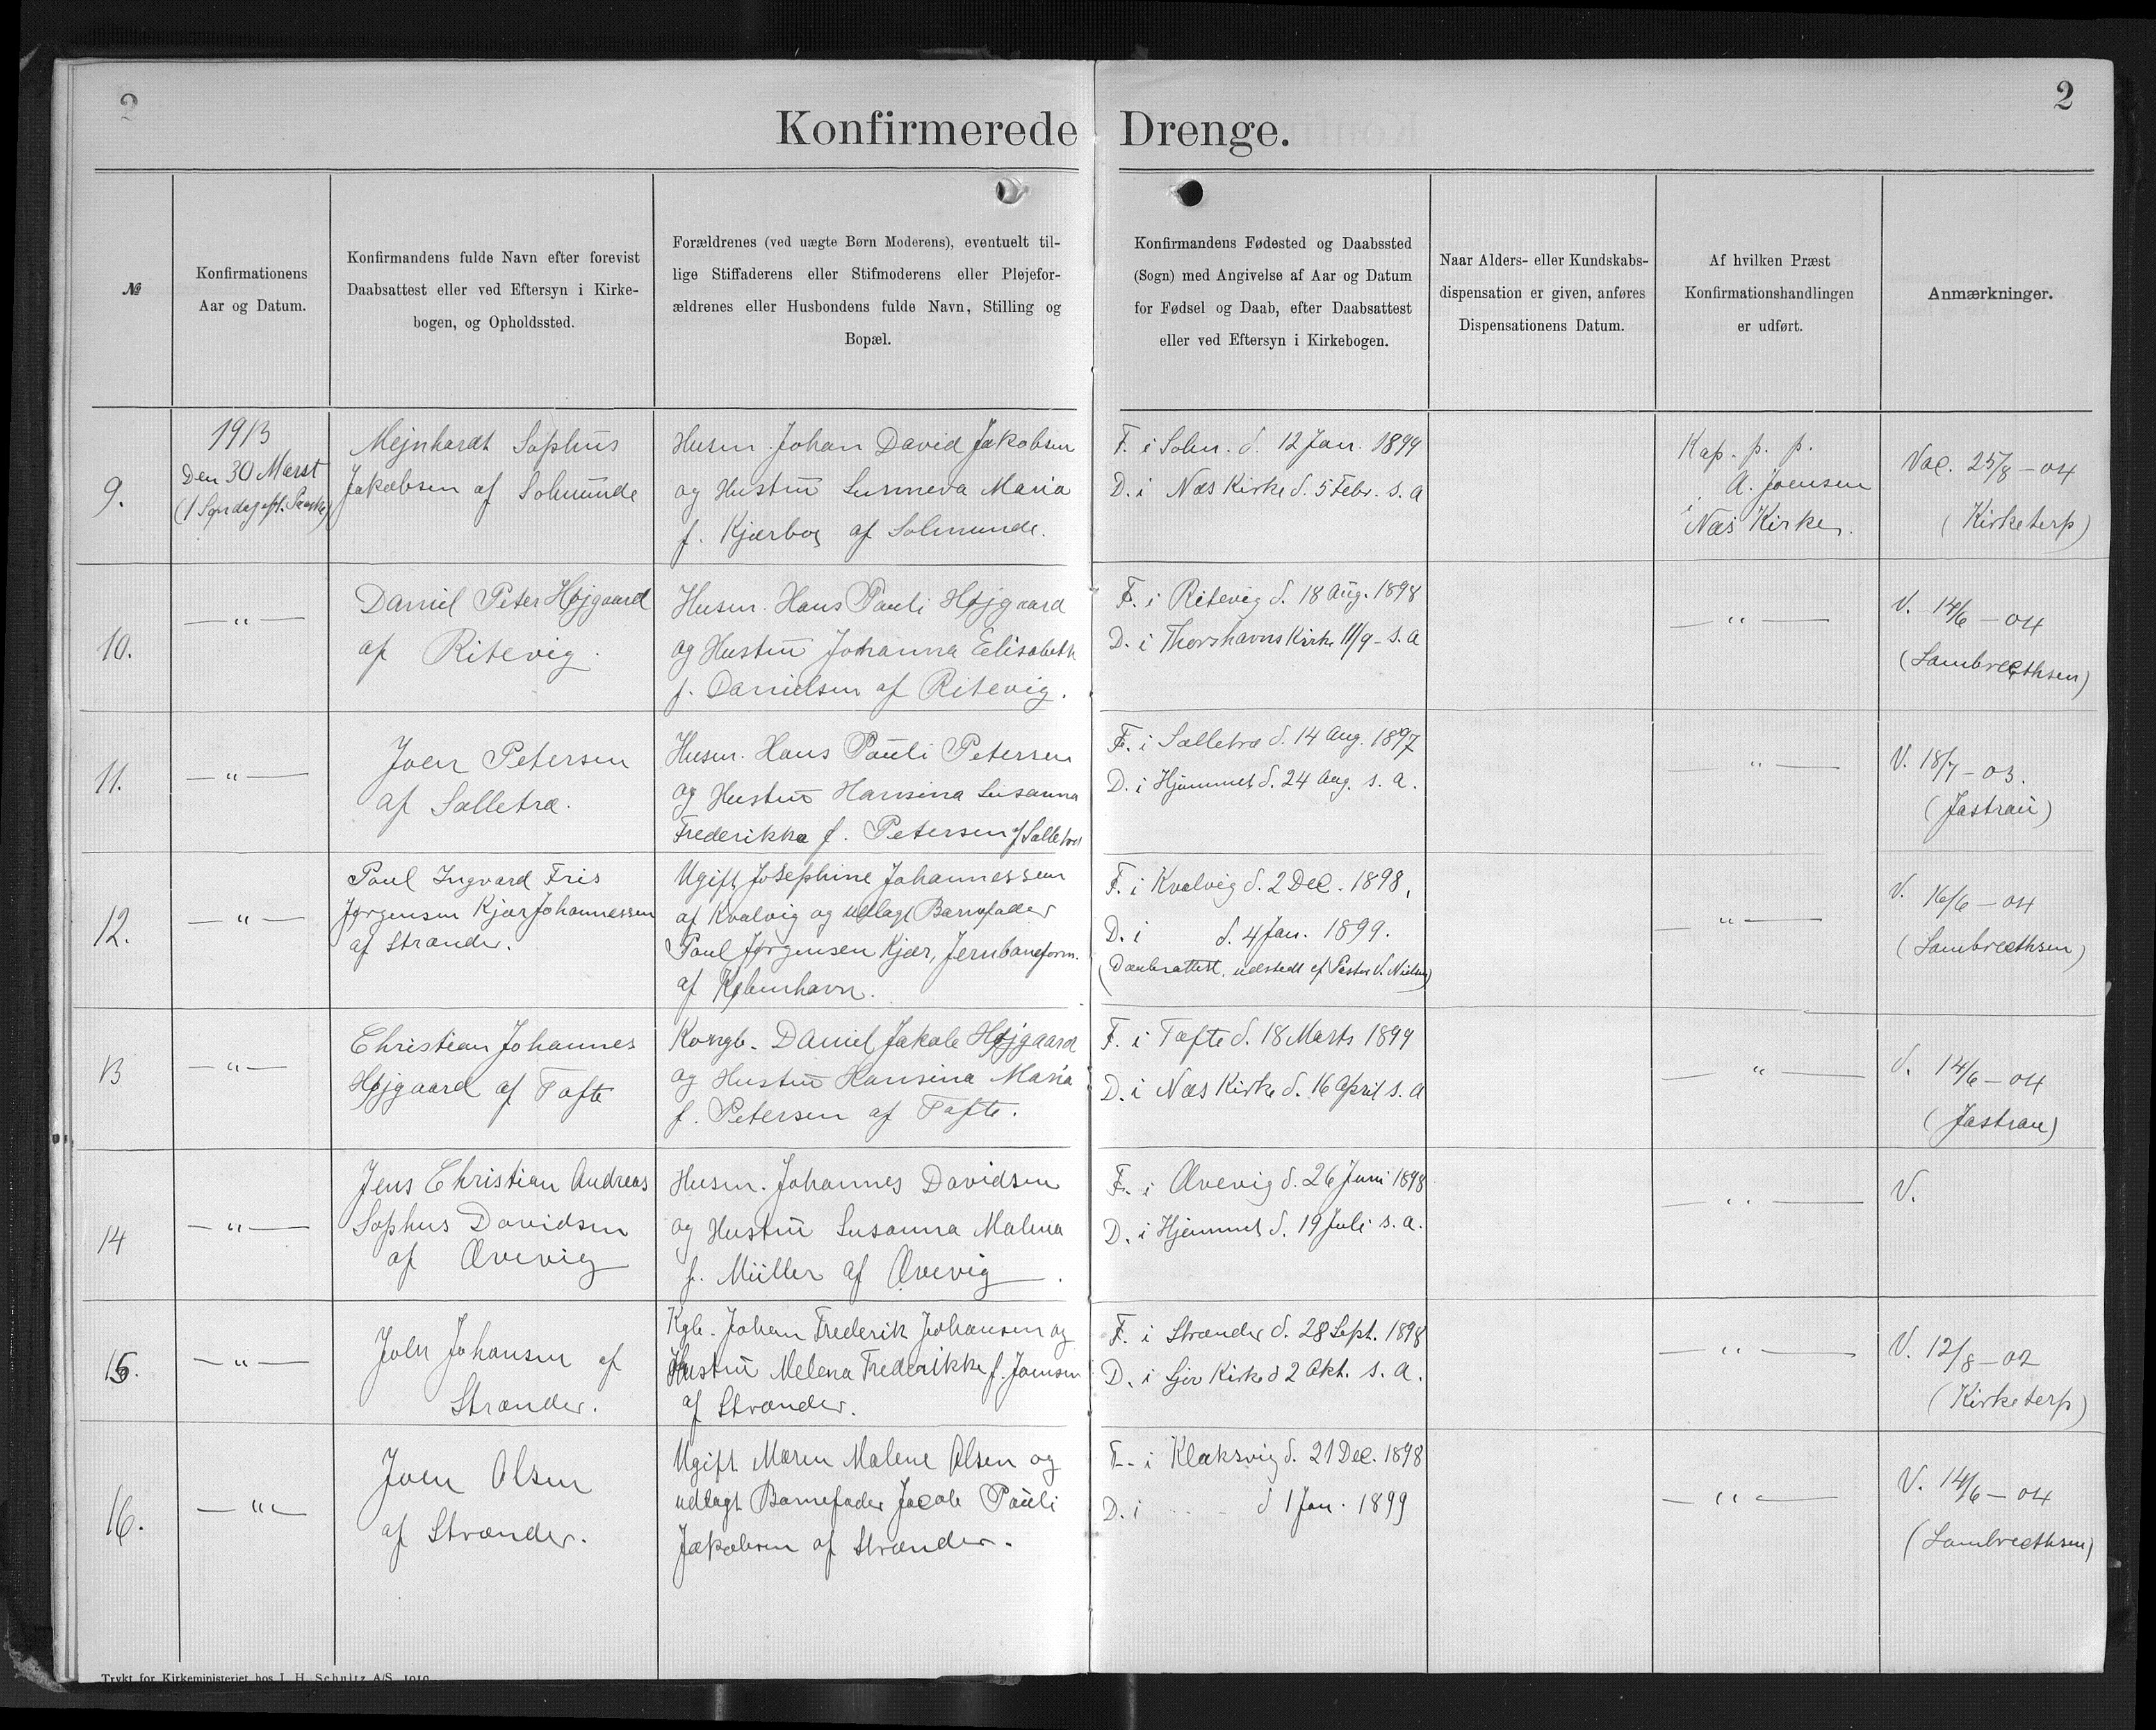 2
2
Konfirmerede Drenge.
№
Konfirmationens
Aar og Datum.
Konfirmandens fulde Navn efter forevist
Daabsattest eller ved Eftersyn i Kirke-
bogen, og Opholdssted.
Forældrenes (ved uægte Børn Moderens), eventuelt til-
lige Stiffaderens eller Stifmoderens eller Plejefor-
ældrenes eller Husbondens fulde Navn, Stilling og
Bopæl.
Konfirmandens Fødested og Daabssted
(Sogn) med Angivelse af Aar og Datum
for Fødsel og Daab, efter Daabsattest
eller ved Eftersyn i Kirkebogen.
Naar Alders- eller Kundskabs-
dispensation er given, anføres
Dispensationens Datum.
Af hvilken Præst
Konfirmationshandlingen
er udført.
Anmærkninger.
9.
1913
Den 30 Marst
(1 Søndag eft. Paaske)
Mejnhardt Sophus
Jakobsen af Solmunde
Husm. Johan David Jakobsen
og Hustru Sunneva Maria
f. Kjærbo af Solmunde.
F. i Solm. d. 12 Jan. 1899
D. i Næs Kirke d. 5 Febr. s. a
Kap. p. p.
A. Joensen
i Næs Kirke.
Vac. 25/8 - 04
(Kirketerp)
10.
— " —
Daniel Peter Højgaard
af Ritevig.
Husm. Hans Pauli Højgaard
og Hustru Johanna Elisabeth
f. Danielsen af Ritevig.
F. i Ritevig d. 18 Aug. 1898
D. i Thorshavns Kirke 11/9 - s. a
— " —
V. 14/6 - 04
(Lambrecthsen)
11.
— " —
Joen Petersen
af Salletræ.
Husm. Hans Pauli Petersen
og Hustru Hansina Susanna
Frederikka f. Petersen af Salletræ
F. i Salletræ d. 14 Aug. 1897
D. i Hjemmet d. 24 Aug. s. a.
— " —
V. 18/7 - 03.
(Jastrau)
12.
— " —
Poul Ingvard Fris
Jørgensen Kjær Johannessen
af Strænder.
Ugift Josephine Johannessen
af Kvalvig og udlagt Barnefader
Poul Jørgensen Kjær, Jernbaneform.
af København.
F. i Kvalvig d. 2 Dec. 1898,
D. i d. 4 Jan. 1899.
(Daabsattest udstedt af Pastor V. Nielsen)
— " —
V. 16/6 - 04
(Lambrecthsen)
13
— " —
Christian Johannes
Højgaard af Tofte
Kongb. Daniel Jakob Højgaard
og Hustru Hansina Maria
f. Petersen af Tofte.
F. i Tofte d. 18 Marts 1899
D. i Næs Kirke d. 16 April s. a
— " —
V. 14/6 - 04
(Jastrau)
14
— " —
Jens Christian Andreas
Sophus Davidsen
af Ørevig
Husm. Johannes Davidsen
og Hustru Susanna Malena
f. Müller af Ørevig.
F. i Ørevig d. 26 Juni 1898
D. i Hjemmet d. 19 Juli s. a.
— " —
V.
15.
— " —
Joen Johansen af
Strænder.
Kgb. Johan Frederik Johansen og
Hustru Melena Frederikke f. Joensen
af Strænder.
F. i Strænder d. 28 Sept. 1898
D. i Sjov Kirke d 2 Okt. s. a.
— " —
V. 12/8 - 02
(Kirketerp)
16.
— " —
Joen Olsen
af Strænder.
Ugift Maren Malene Olsen og
udlagt Barnefader Jacob Pauli
Jakobsen af Strænder.
F. i Klaksvig d. 21 Dec. 1898
D. i d 1 Jan. 1899
— " —
V. 14/6 - 04
(Lambrecthsen)
Trykt for Kirkeministeriet hos J. H. Schultz A/S. 1910